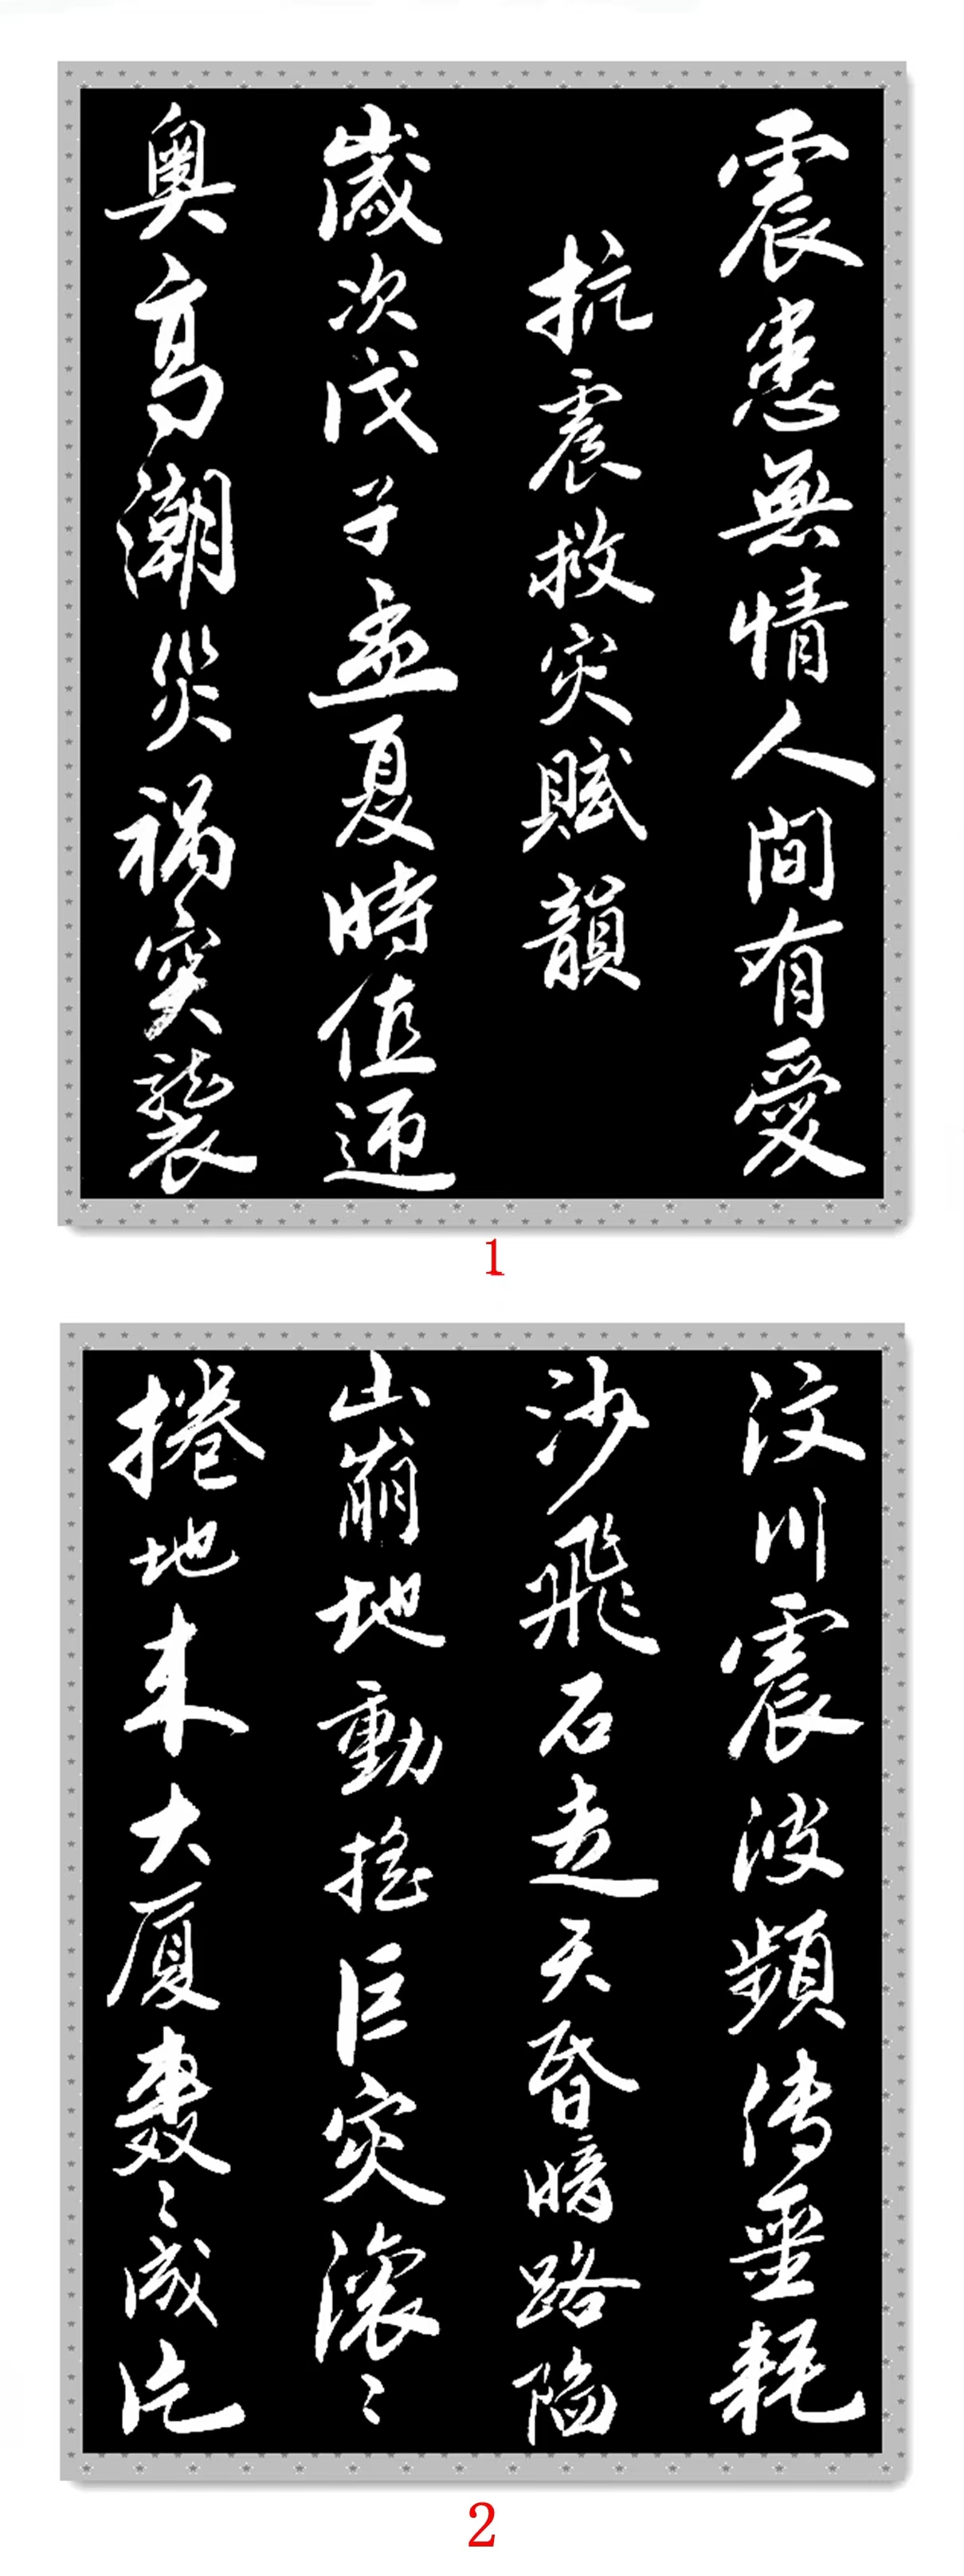 震患無情人間有愛
抗震救灾賦韻
歲次戊子孟夏時值迎
奥高潮災祸突襲
1
汶川震波頻傳噩耗
沙飛石走天昏暗路陷
山崩地動搖巨灾滚〻
捲地来大厦轰〻成片
2